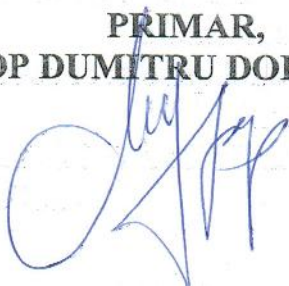 PRIMAR,
OP DUMITRU DO